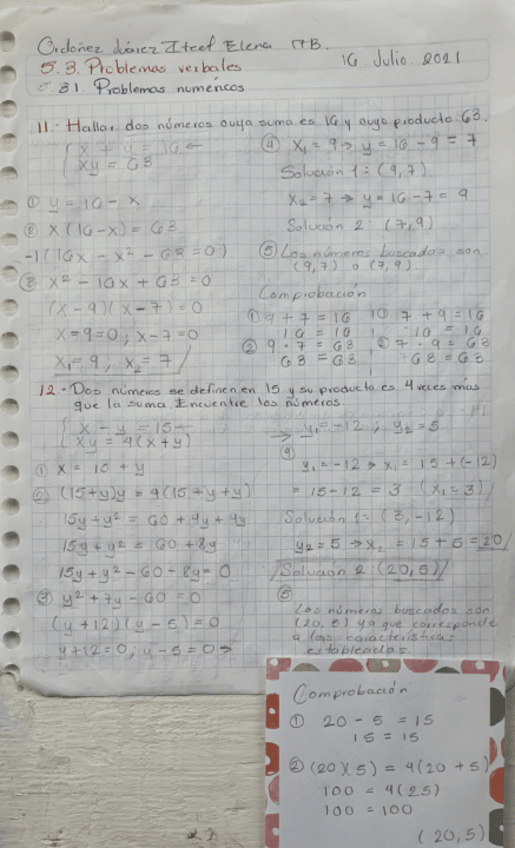 Ordoñez Juárez Itcel Elena 17B.
16 Julio 2021
5.3. Problemas verbales
5.31. Problemas numéricos
11.- Hallar dos números cuya suma es 16 y cuyo producto 63.
x + y = 16 ←
xy = 63
① y = 16 - x
② x(16-x) = 63
-1(16x - x² - 63 = 0)
③ x² - 16x + 63 = 0
(x - 9)(x - 7) = 0
x = 9 = 0; x - 7 = 0
x₁ = 9, x₂ = 7
④ x₁ = 9 → y = 16 - 9 = 7
Solución 1: (9,7)
x₂ = 7 → y = 16 - 7 = 9
Solución 2: (7,9)
⑤ Los números buscados son
(9,7) o (7,9).
Comprobación
① 9 + 7 = 16
16 = 16
② 9 · 7 = 63
63 = 63
① 7 + 9 = 16
16 = 16
② 7 · 9 = 63
63 = 63
12.- Dos números se definen en 15 y su producto es 4 veces más
que la suma. Encuentre los números.
x - y = 15
xy = 4(x + y)
① x = 15 + y
② (15+y)y = 4(15 + y + y)
15y + y² = 60 + 4y + 4y
15y + y² = 60 + 8y
15y + y² - 60 - 8y = 0
③ y² + 7y - 60 = 0
(y + 12)(y - 5) = 0
y + 12 = 0; y - 5 = 0 →
→ y₁ = -12; y₂ = 5
④
y₁ = -12 → x₁ = 15 + (-12)
= 15 - 12 = 3 (x₁ = 3)
Solución 1 = (3, -12)
y₂ = 5 → x₂ = 15 + 5 = 20
Solución 2: (20, 5)
⑤
Los números buscados son
(20, 5) ya que corresponde
a las características
establecidas.
Comprobación
① 20 - 5 = 15
15 = 15
② (20)(5) = 4(20 + 5)
100 = 4(25)
100 = 100
(20,5)